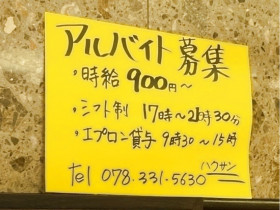 アルバイト募集
・時給900円~
・シフト制 17時~21時30分
・エプロン貸与 9時30~15時
tel 078.331.5630
ハウサン